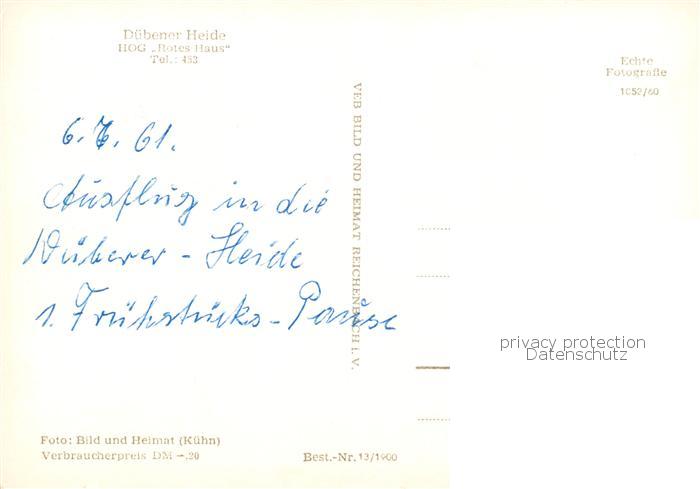 Dübener Heide
HOG „Rotes Haus“
Tel.: 453
Echte
Fotografie
1052/60
6. 7. 61.
Ausflug in die
Dübener - Heide
1. Frühstücks - Pause
VEB BILD UND HEIMAT REICHENBACH i. V.
privacy protection
Datenschutz
Foto: Bild und Heimat (Kühn)
Verbraucherpreis DM –,20
Best.-Nr. 13/1900